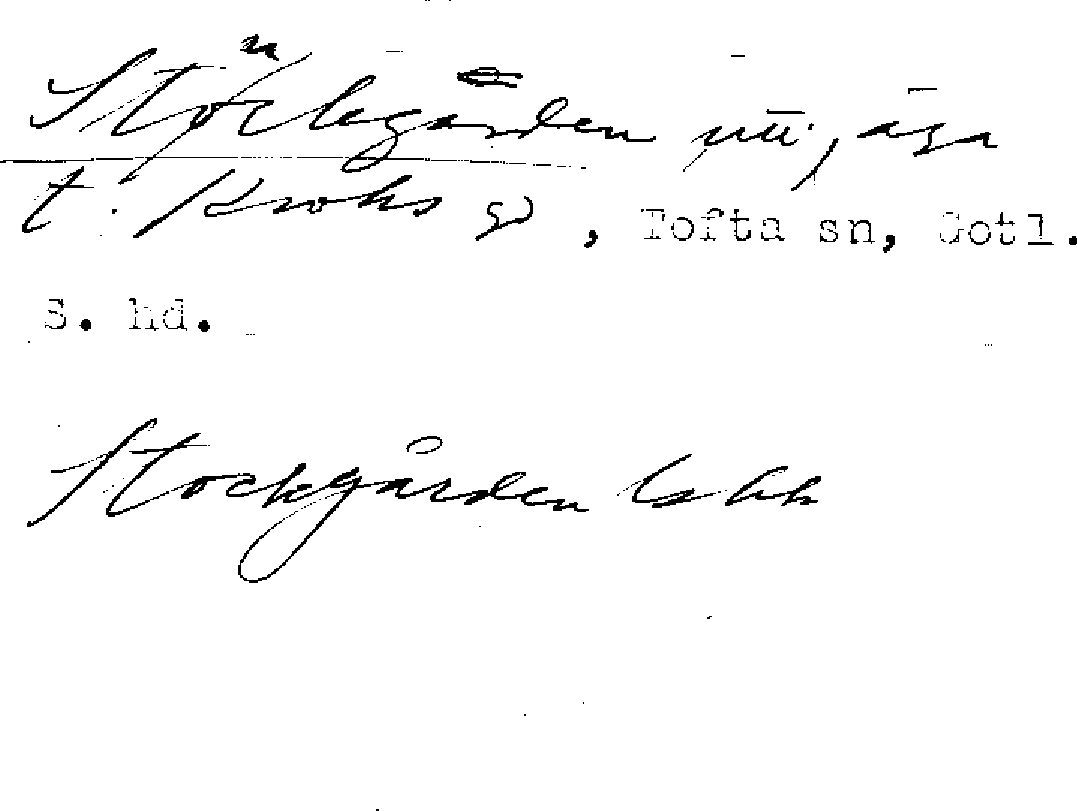 Stockgården nu, äga
t. Kroks gd, Tofta sn, Gotl.
S. hd.
Stockgården